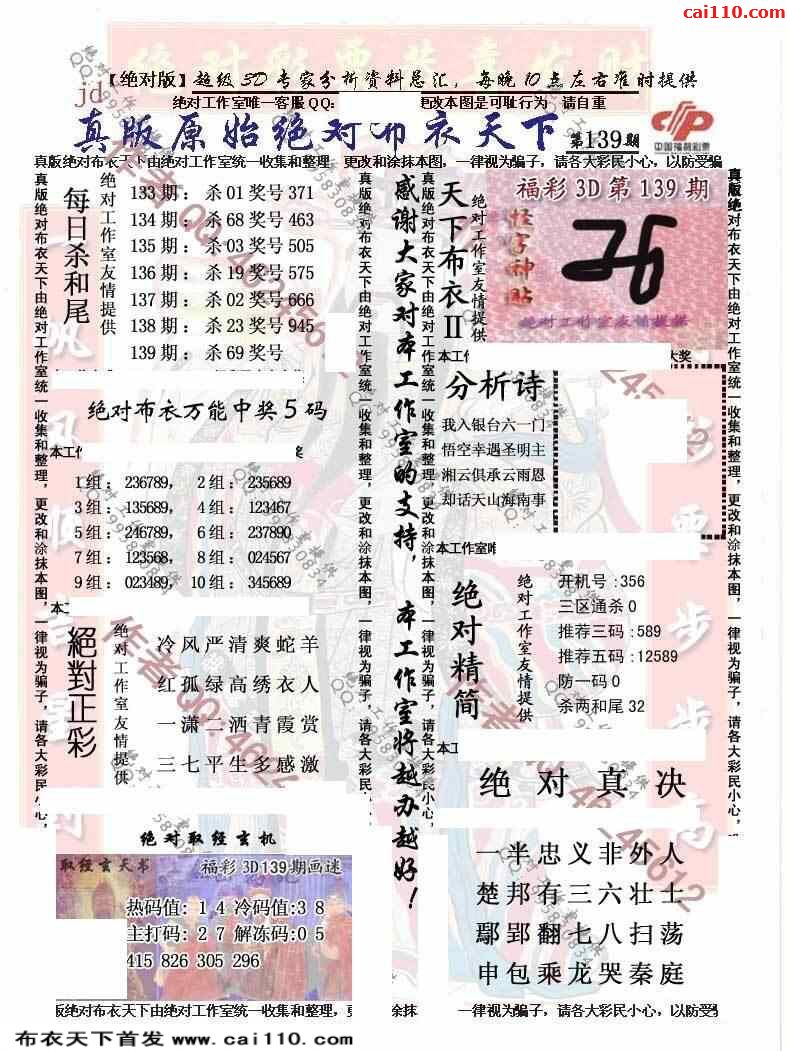 cai110.com
【绝对版】超级3D专家分析资料总汇，每晚10点左右准时提供
jd
绝对工作室唯一客服QQ:
更改本图是可耻行为 请自重
真版原始绝对布衣天下
第139期
中国福利彩票
真版绝对布衣天下由绝对工作室统一收集和整理 更改和涂抹本图，一律视为骗子，请各大彩民小心，以防受骗
真版绝对布衣天下由绝对工作室统一收集和整理，更改和涂抹本图，一律视为骗子，请各大彩民小心，
每日杀和尾
绝对工作室友情提供
133期：杀01奖号371
134期：杀68奖号463
135期：杀03奖号505
136期：杀19奖号575
137期：杀02奖号666
138期：杀23奖号945
139期：杀69奖号
绝对布衣万能中奖5码
本工作
奖
1组：236789， 2组：235689
3组：135689， 4组：123467
5组：246789， 6组：237890
7组：123568， 8组：024567
9组：023489，10组：345689
本工
絕對正彩
绝对工作室友情提供
冷风严清爽蛇羊
红孤绿高绣衣人
一潇二洒青霞赏
三七平生多感激
绝对取经玄机
取经玄天书
福彩3D139期画谜
热码值: 1 4 冷码值:3 8
主打码: 2 7 解冻码:0 5
415 826 305 296
真版绝对布衣天下由绝对工作室统一收集和整理，更改和涂抹本图，一律视为骗子，请各大彩民小心，
感谢大家对本工作室的支持，本工作室将越办越好！
真版绝对布衣天下由绝对工作室统一收集和整理，更改和涂抹本图，一律视为骗子，请各大彩民小心，
天下布衣II
绝对工作室友情提供
福彩3D第139期
怪字神贴
绝对工作室友情提供
本工作
大奖
分析诗
我入银台六一门
悟空幸遇圣明主
湘云俱承云雨恩
却话天山海南事
本工作室唯
绝对精简
绝对工作室友情提供
开机号:356
三区通杀0
推荐三码:589
推荐五码:12589
防一码0
杀两和尾32
本工
绝对真决
一半忠义非外人
楚邦有三六壮士
鄢郢翻七八扫荡
申包乘龙哭秦庭
真版绝对布衣天下由绝对工作室统一收集和整理，更改和涂抹本图，一律视为骗子，请各大彩民小心，
版绝对布衣天下由绝对工作室统一收集和整理，更
涂抹
一律视为骗子，请各大彩民小心，以防受
布衣天下首发 www.cai110.com